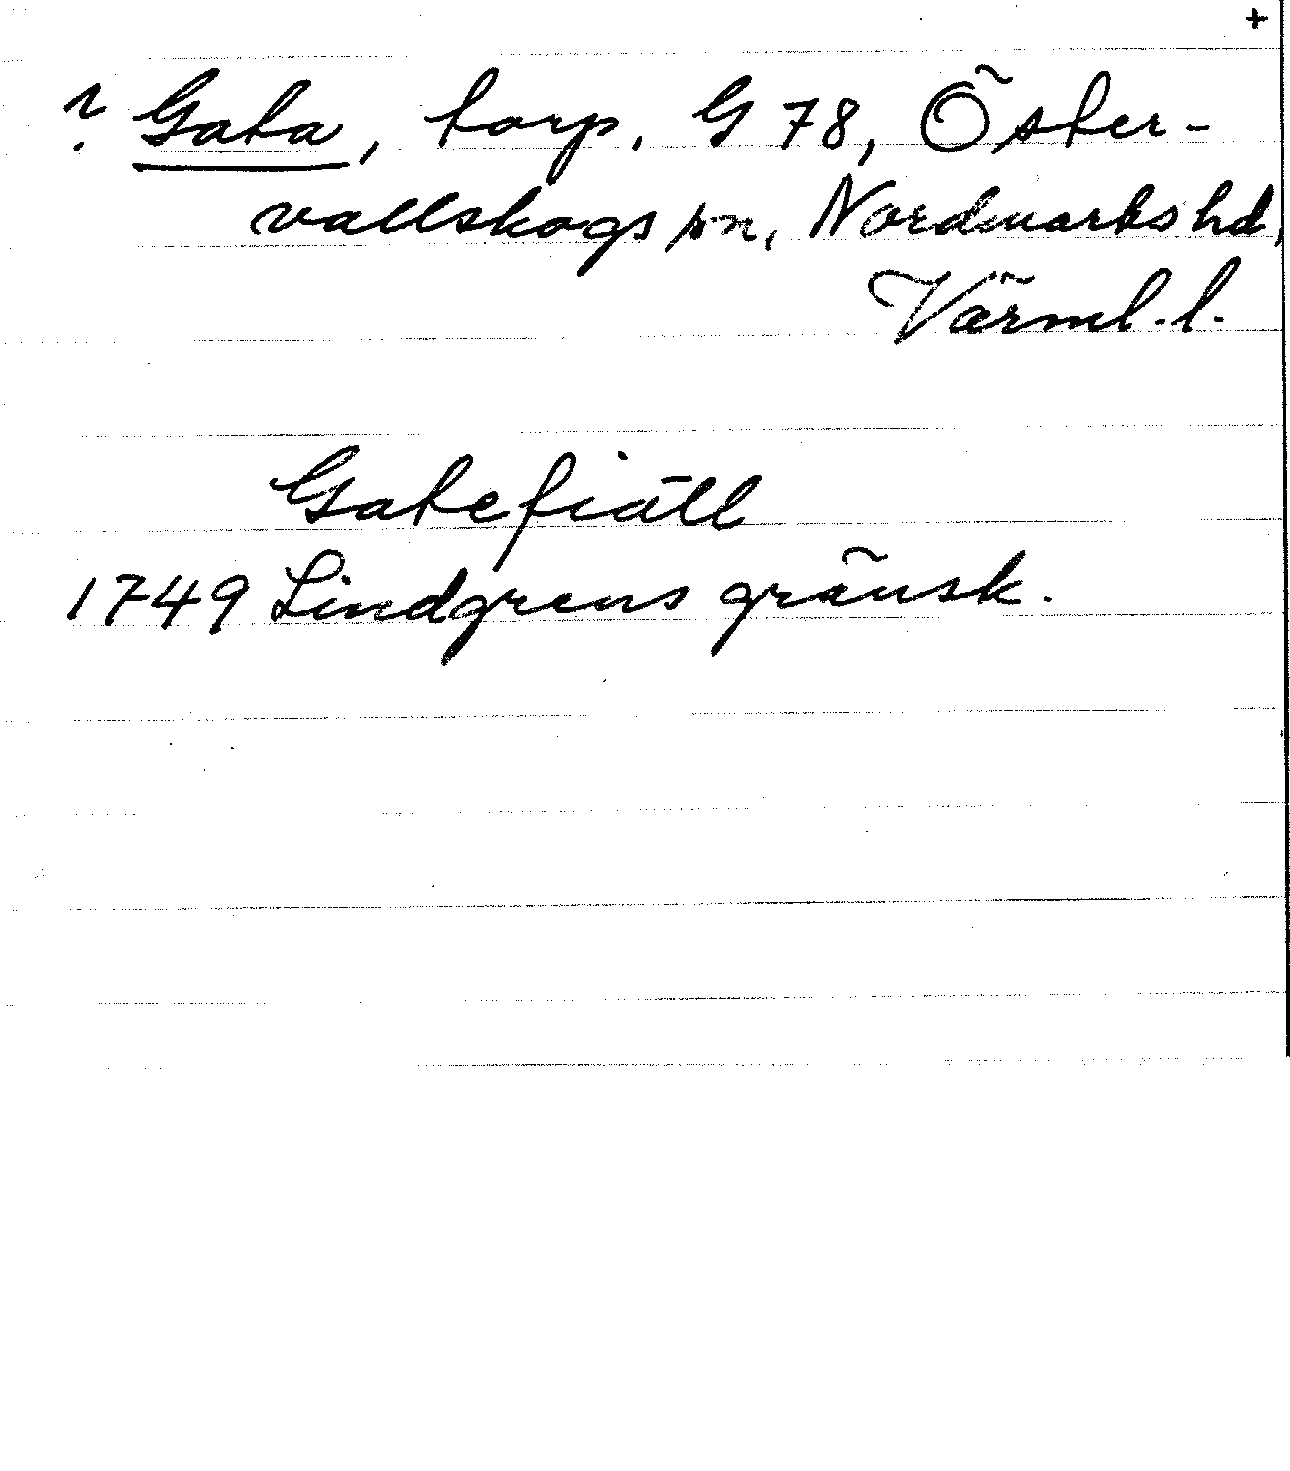 +
? Gata, torp, G 78, Öster-
vallskogs sn, Nordmarks hd,
Värml. l.
Gatefiäll
1749 Lindgrens gränsk.